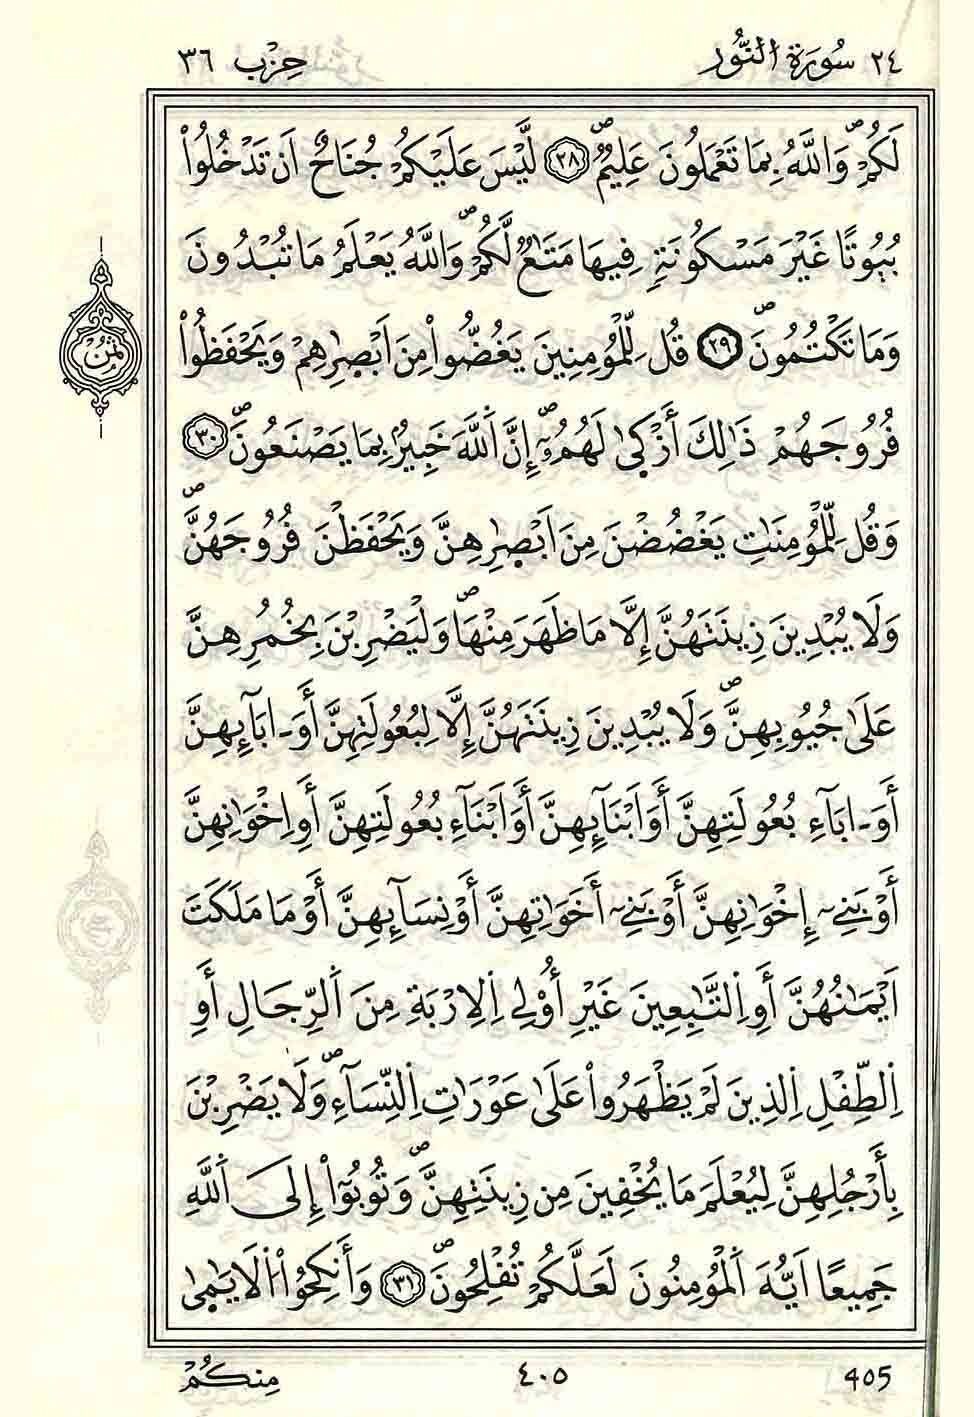 ٢٤ سُورَةُ النُّور حِزْب ٣٦
لَكُمْ وَاللَّهُ بِمَا تَعْمَلُونَ عَلِيمٌ ٢٨ لَّيْسَ عَلَيْكُمْ جُنَاحٌ اَن تَدْخُلُواْ
بُيُوتًا غَيْرَ مَسْكُونَةٍ فِيهَا مَتَٰعٌ لَّكُمْ وَاللَّهُ يَعْلَمُ مَا تُبْدُونَ
وَمَا تَكْتُمُونَ ٢٩ قُل لِّلْمُومِنِينَ يَغُضُّواْ مِنَ اَبْصٰ۪رِهِمْ وَيَحْفَظُواْ
ثمن
فُرُوجَهُمْ ذَٰلِكَ أَزْكَىٰ لَهُمُۥٓ إِنَّ اَللَّهَ خَبِيرُۢ بِمَا يَصْنَعُونَ ٣٠
وَقُل لِّلْمُومِنَٰتِ يَغْضُضْنَ مِنَ اَبْصٰ۪رِهِنَّ وَيَحْفَظْنَ فُرُوجَهُنَّ
وَلَا يُبْدِينَ زِينَتَهُنَّ إِلَّا مَا ظَهَرَ مِنْهَا وَلْيَضْرِبْنَ بِخُمُرِهِنَّ
عَلَىٰ جُيُوبِهِنَّ وَلَا يُبْدِينَ زِينَتَهُنَّ إِلَّا لِبُعُولَتِهِنَّ أَوَ ـ ابَآئِهِنَّ
أَوَ ـ ابَآءِ بُعُولَتِهِنَّ أَوَ اَبْنَآئِهِنَّ أَوَ اَبْنَآءِ بُعُولَتِهِنَّ أَوِ اِخْوَٰنِهِنَّ
أَوْ بَنِےٓ إِخْوَٰنِهِنَّ أَوْ بَنِےٓ أَخَوَٰتِهِنَّ أَوْ نِسَآئِهِنَّ أَوْ مَا مَلَكَتَ
اَيْمَٰنُهُنَّ أَوِ اِلتَّٰبِعِينَ غَيْرِ أُوْلِے اِلِارْبَةِ مِنَ اَلرِّجَالِ أَوِ
اِلطِّفْلِ اِلذِينَ لَمْ يَظْهَرُواْ عَلَىٰ عَوْرَٰتِ اِلنِّسَآءِ وَلَا يَضْرِبْنَ
بِأَرْجُلِهِنَّ لِيُعْلَمَ مَا يُخْفِينَ مِن زِينَتِهِنَّ وَتُوبُوٓاْ إِلَى اَللَّهِ
جَمِيعًا اَيُّهَ اَلْمُومِنُونَ لَعَلَّكُمْ تُفْلِحُونَ ٣١ وَأَنكِحُواْ اُلَايَٰمَىٰ
405 ٤٠٥ مِنكُمْ